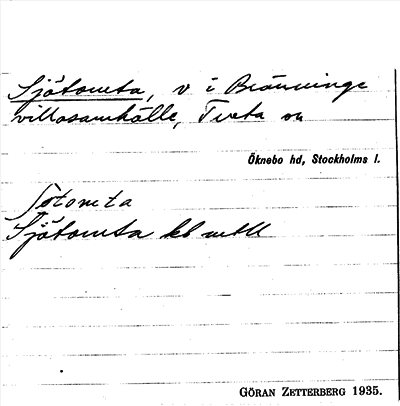 Sjötomta, v i Bränninge
villasamhälle, Tveta sn
Öknebo hd, Stockholms l.
Sjötomta
GÖRAN ZETTERBERG 1935.